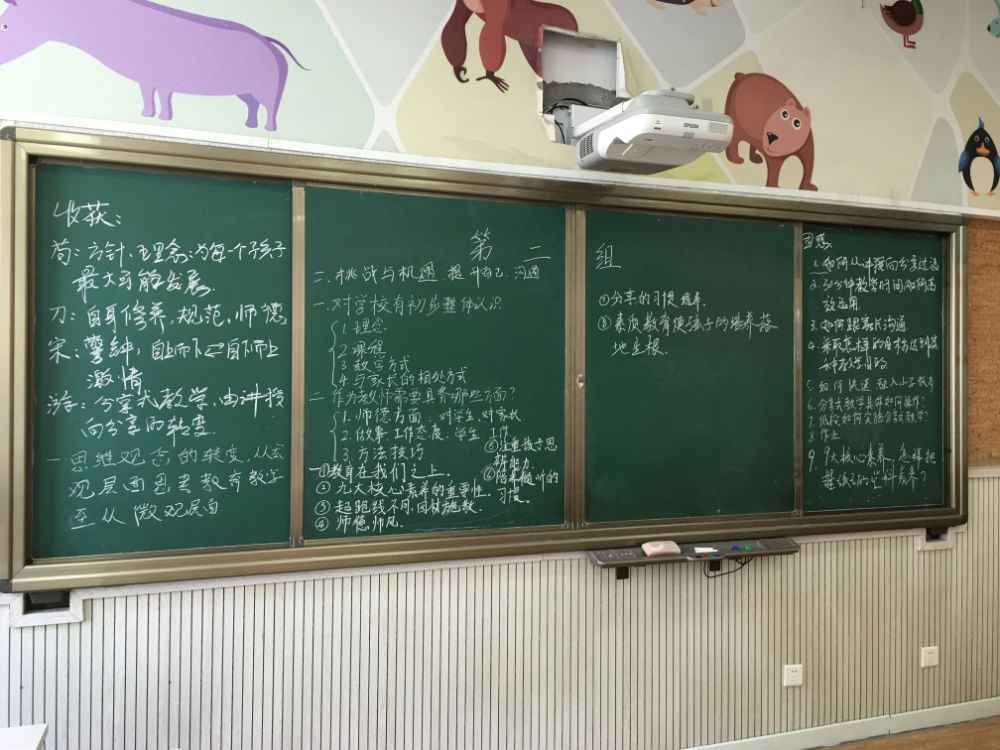 收获：
荀：方针、理念：为每一个孩子
最大可能发展.
刀：自身修养,规范,师德,
宋：警钟,自上而下⇄自下而上
激情
分享式教学,由讲授
向分享的转变
一.思维观念的转变,从宏
观层面思考教育教学
至从微观层面.
第二组
二.挑战与机遇 提升自己.沟通
一.对学校有初步整体认识
1.理念
2.课程
3.教学方式
4.与家长的相处方式
二.作为教师需要具备哪些方面?
1.师德方面：对学生,对家长
2.做事.工作态度：学生 工作
3.方法技巧
⑤注重孩子思
辨能力.
⑥培养倾听的
习惯.
①教育在我们之上.
②九大核心素养的重要性.
③起跑线不同,因材施教.
④师德,师风.
①分享的习惯
②素质教育使孩子的培养落
地生根.
困惑：
1.如何从讲授向分享过渡
2.30分钟教学时间如何高
效运用
3.如何跟家长沟通
4.采取怎样的
5.如何快速融入小学教育
6.分享式教学具体如何操作?
7.低段如何实施分享式教学?
8.作业
9.9大核心素养,怎样把
学科素养?
EPSON